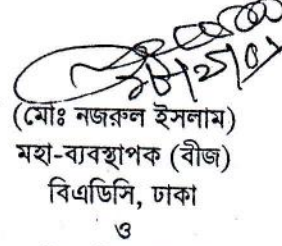 (মোঃ নজরুল ইসলাম)
মহা-ব্যবস্থাপক (বীজ)
বিএডিসি, ঢাকা
ও